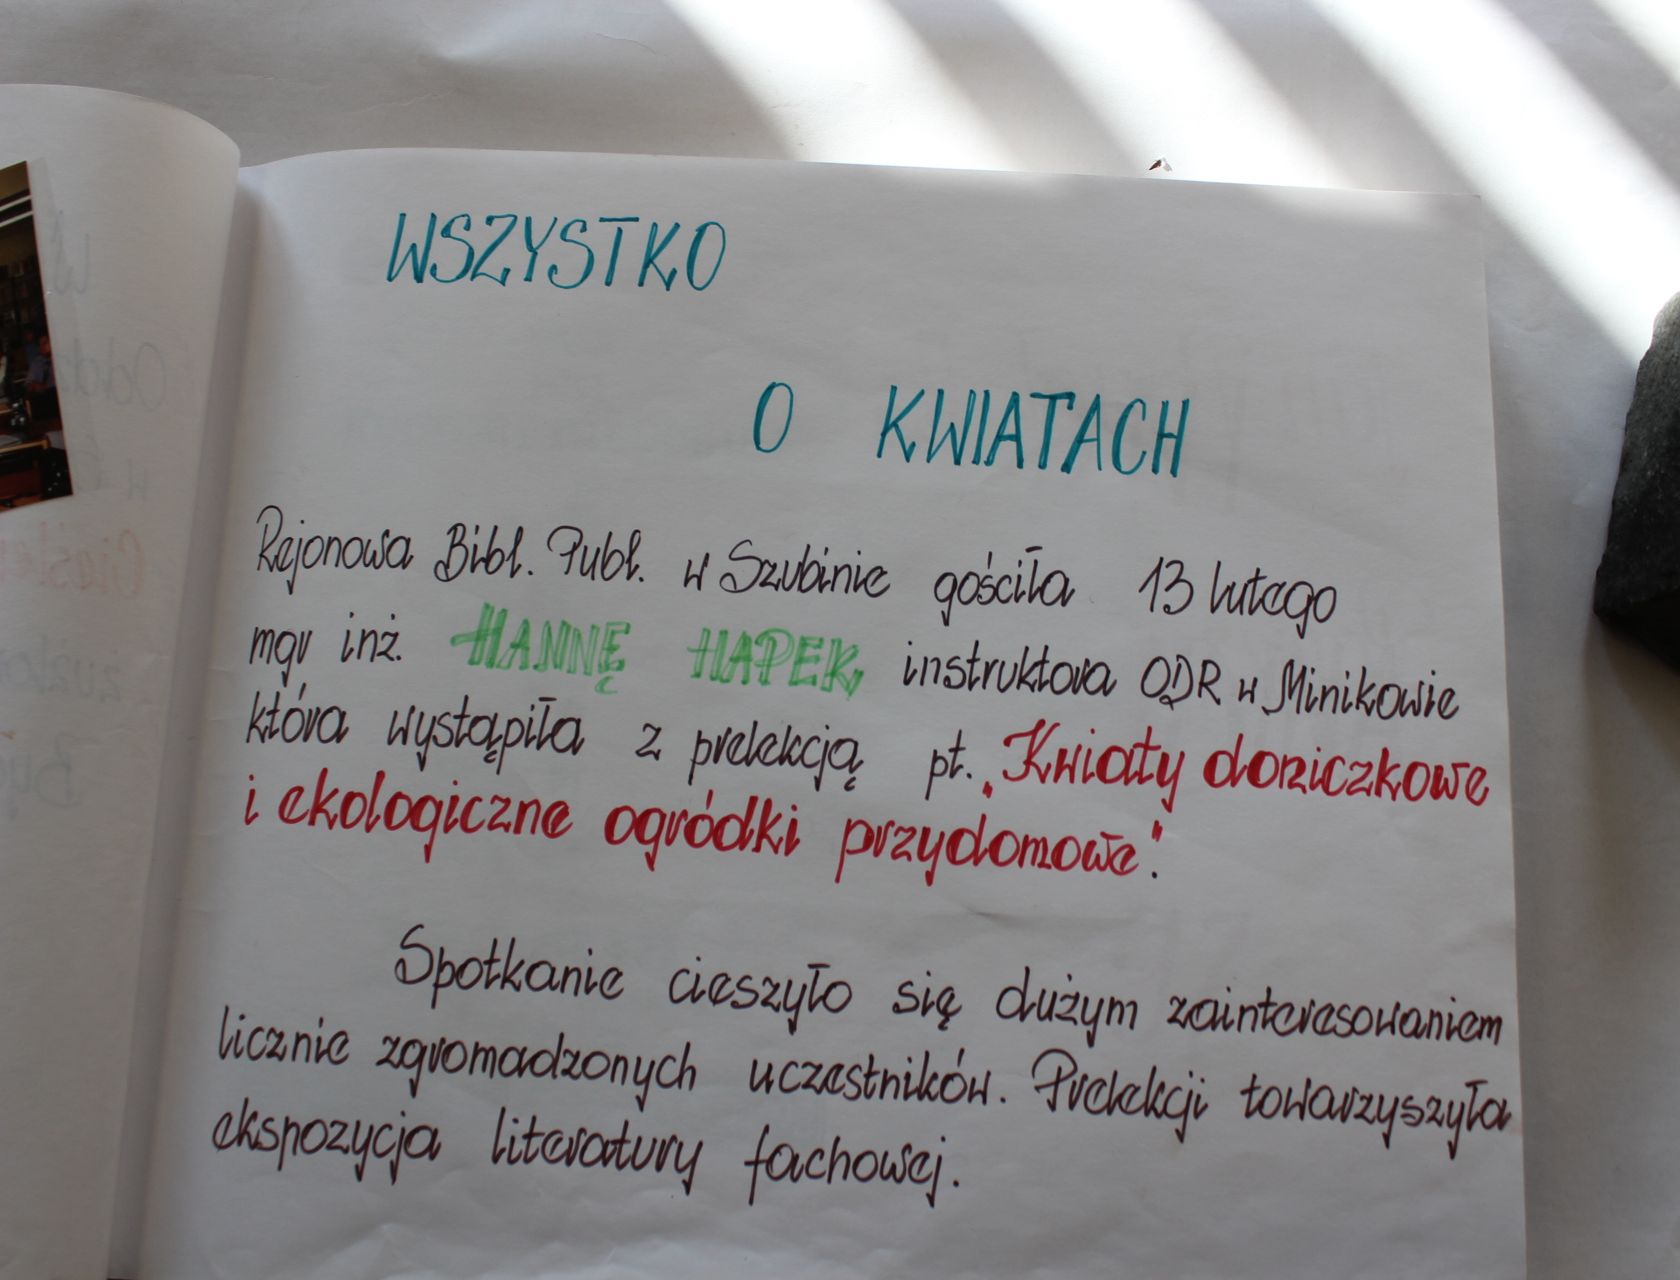 WSZYSTKO
O KWIATACH
Rejonowa Bibl. Publ. w Szubinie gościła 13 lutego
mgr inż. HANNĘ HAPEK, instruktora ODR w Minikowie
która wystąpiła z prelekcją pt. „Kwiaty doniczkowe
i ekologiczne ogródki przydomowe".
Spotkanie cieszyło się dużym zainteresowaniem
licznie zgromadzonych uczestników. Prelekcji towarzyszyła
ekspozycja literatury fachowej.